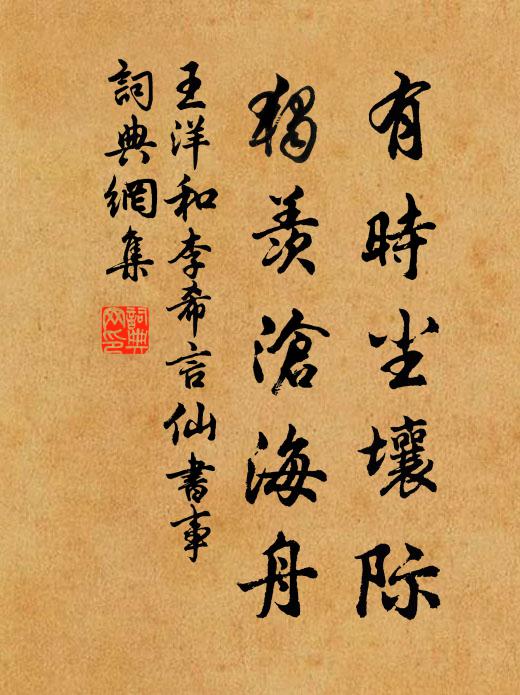 有時尘壤际
獨羨滄海舟
王洋和李希言仙書事
詞典網集
詞典網印